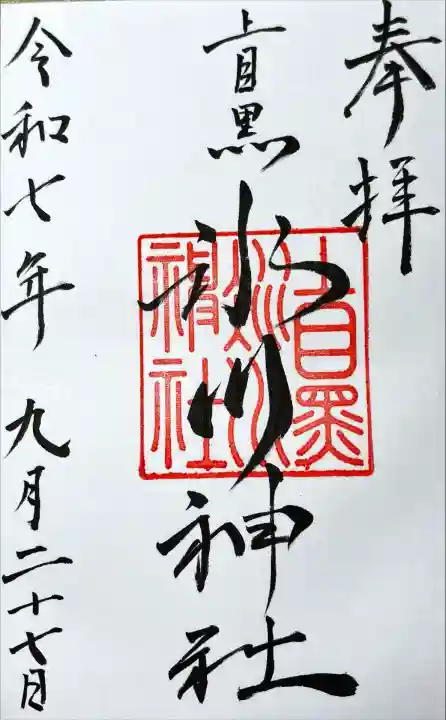 奉拝
上目黒
氷川神社
上目黒
氷川
神社
令和七年 九月二十七日